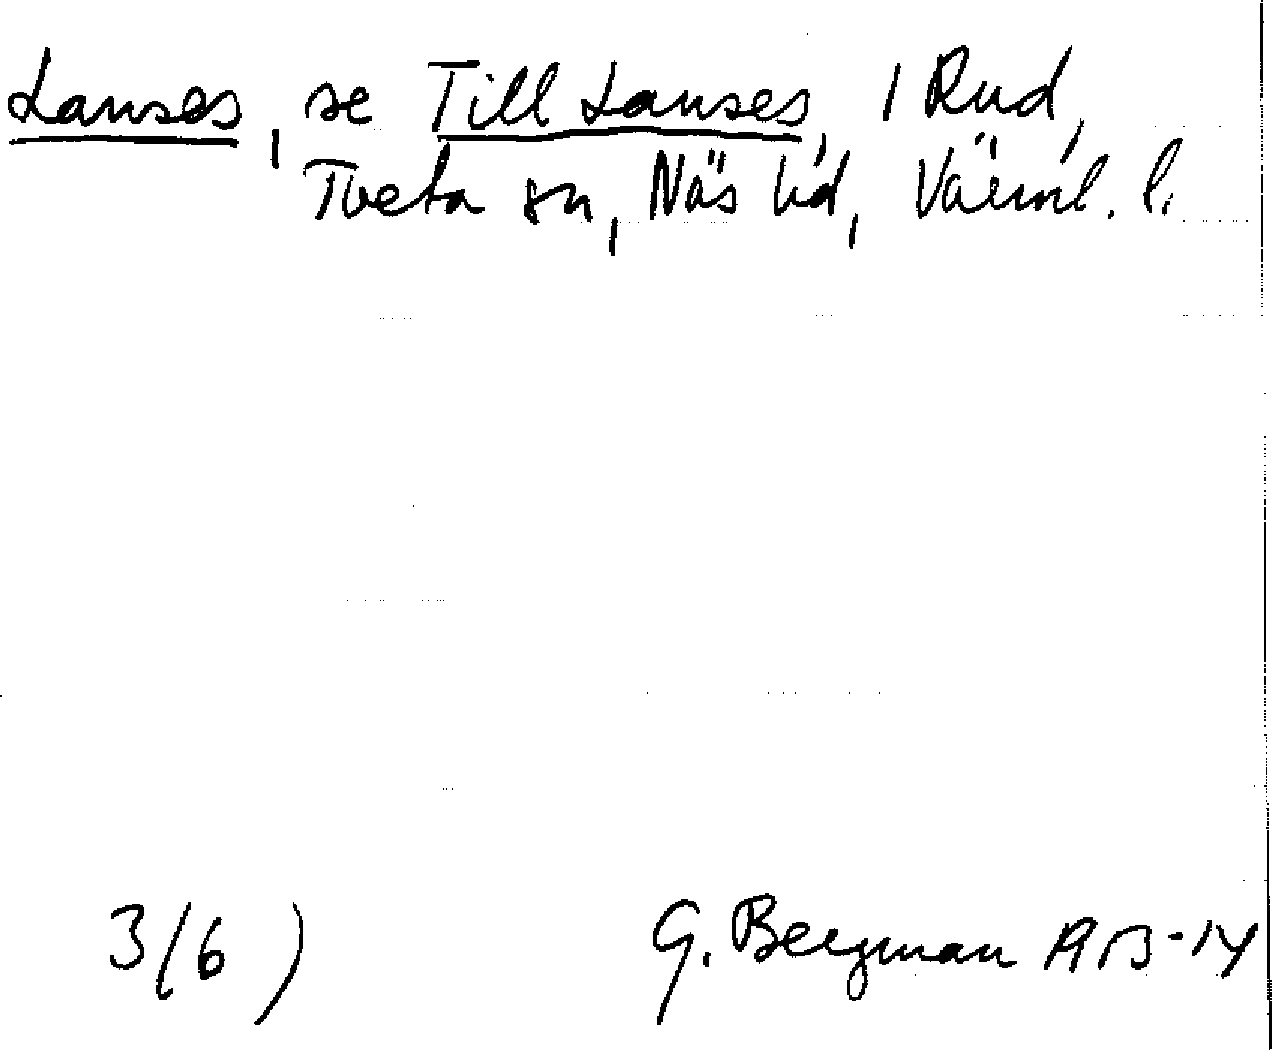 Lanses, se Till Lanses, 1 Rud,
Tveta sn, Näs hd, Värml. l.
3(6)
G. Bergman